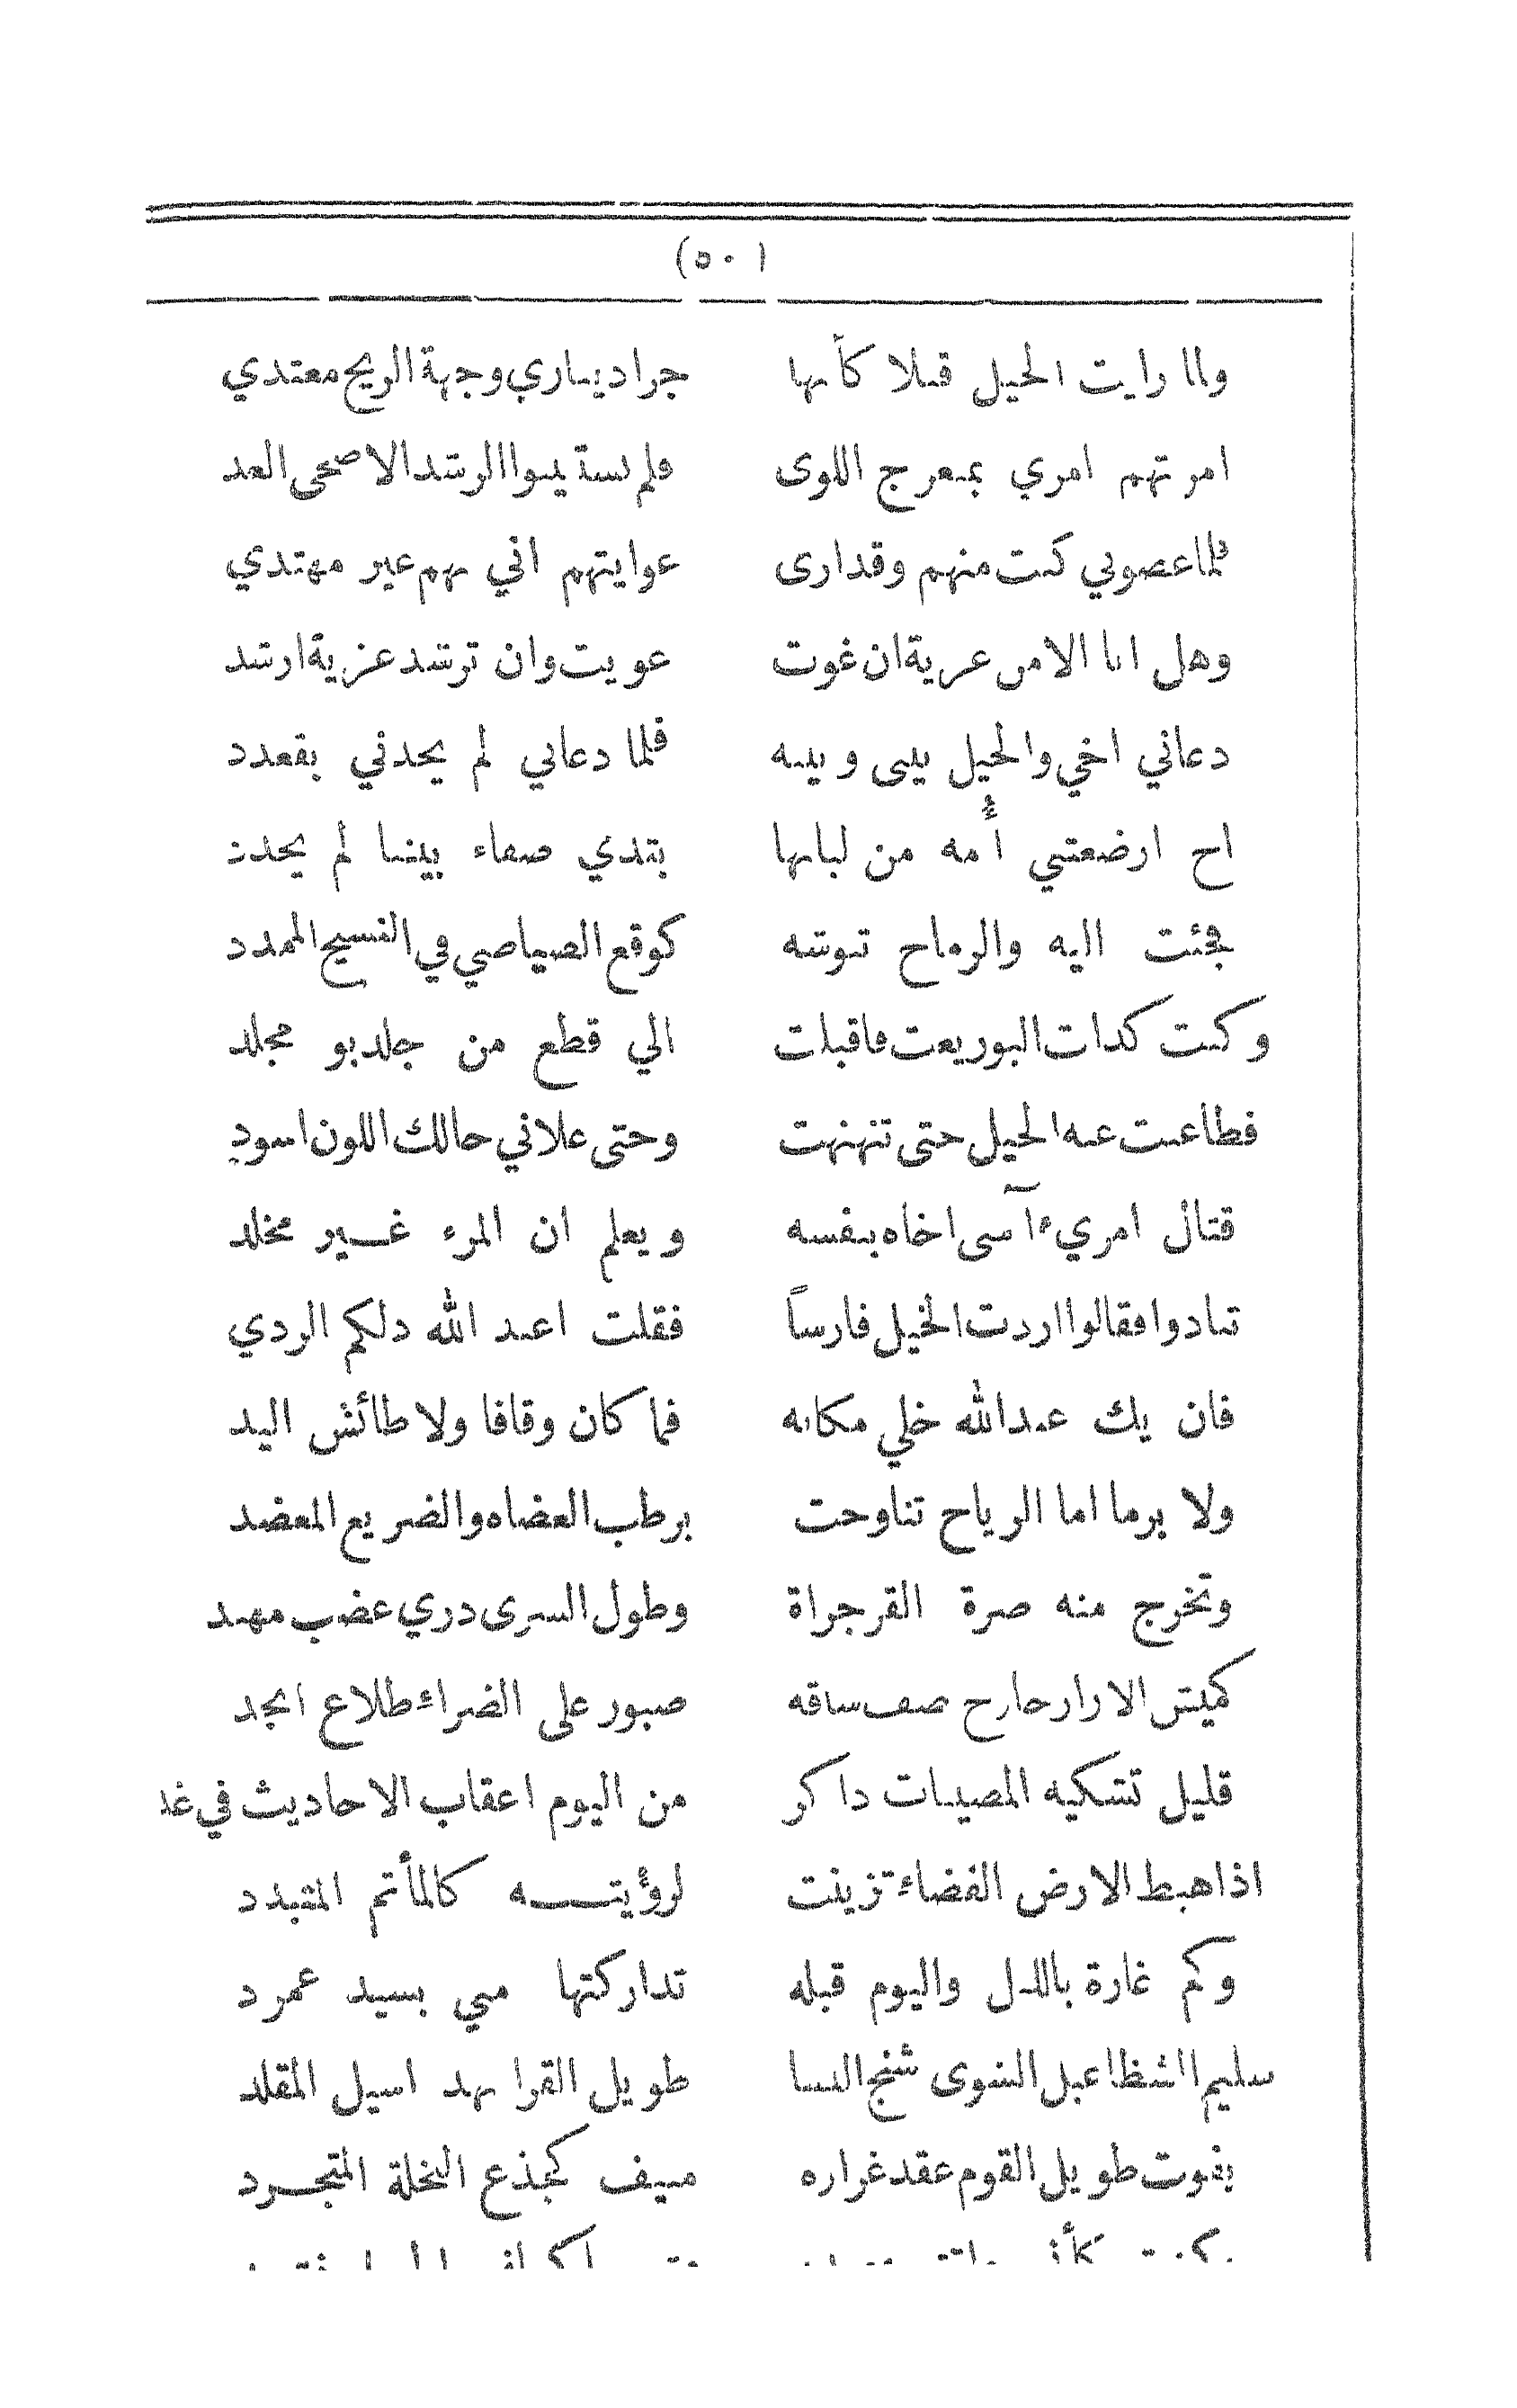 (٥٠)
ولما رايت الخيل قبلا كأنها جراد يباري وجهة الريح معتدي
امرتهم امري بمنعرج اللوى فلم يستبينوا الرشد الا ضحى الغد
فلما عصوني كنت منهم وقد ارى غوايتهم اني بهم غير مهتدي
وهل انا الا من غزية ان غوت غويت وان ترشد غزية ارشد
دعاني اخي والخيل بيني وبينه فلما دعاني لم يجدني بقعدد
اخ ارضعتني أمه من لبانها بثدي صفاء بيننا لم يجدد
فجئت اليه والرماح تنوشه كوقع الصياصي في النسيج الممدد
وكنت كذات البو ريعت فاقبلت الي قطع من جلد بو مجلد
فطاعنت عنه الخيل حتى تنهنهت وحتى علاني حالك اللون اسود
قتال امريء آسى اخاه بنفسه ويعلم ان المرء غير مخلد
تنادوا فقالوا اردت الخيل فارساً فقلت اعبد الله ذلكم الردي
فان يك عبد الله خلي مكانه فما كان وقافا ولا طائش اليد
ولا برما اما الرياح تناوحت برطب العضاه والضريع المعضد
وتخرج منه صرة القر جراة وطول السرى دري عضب مهند
كميش الازار خارج نصف ساقه صبور على الضراء طلاع انجد
قليل تشكيه المصيبات ذاكر من اليوم اعقاب الاحاديث في غد
اذا هبط الارض الفضاء تزينت لرؤيته كالمأتم المتبدد
وكم غارة بالليل واليوم قبله تداركتها مني بسيد عمرد
سليم الشظا عبل الشوى شنج النسا طويل القرا نهد اسيل المقلد
يفوت طويل القوم عقد غراره منيف كجذع النخلة المتجرد